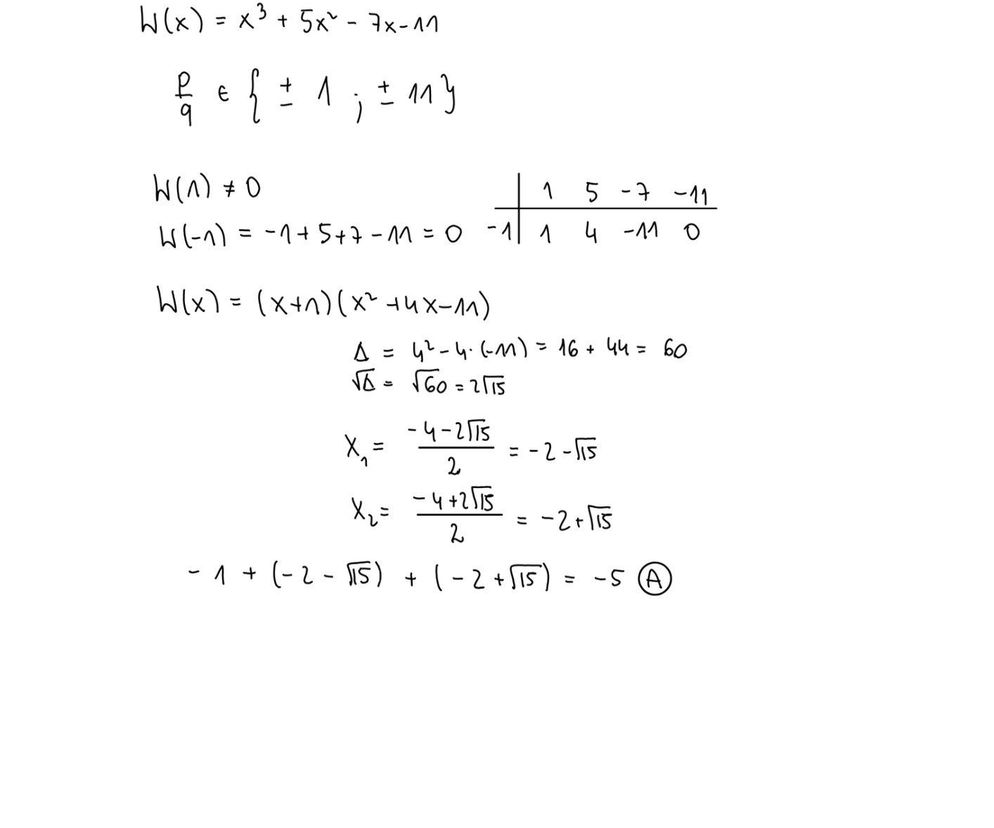 W(x) = x³ + 5x² - 7x - 11
p/q ∈ {± 1 ; ± 11}
W(1) ≠ 0
1 5 -7 -11
W(-1) = -1 + 5 + 7 - 11 = 0
-1 1 4 -11 0
W(x) = (x+1)(x² + 4x - 11)
Δ = 4² - 4·(-11) = 16 + 44 = 60
√Δ = √60 = 2√15
x₁ = (-4 - 2√15)/2 = -2 - √15
x₂ = (-4 + 2√15)/2 = -2 + √15
-1 + (-2 - √15) + (-2 + √15) = -5 Ⓐ